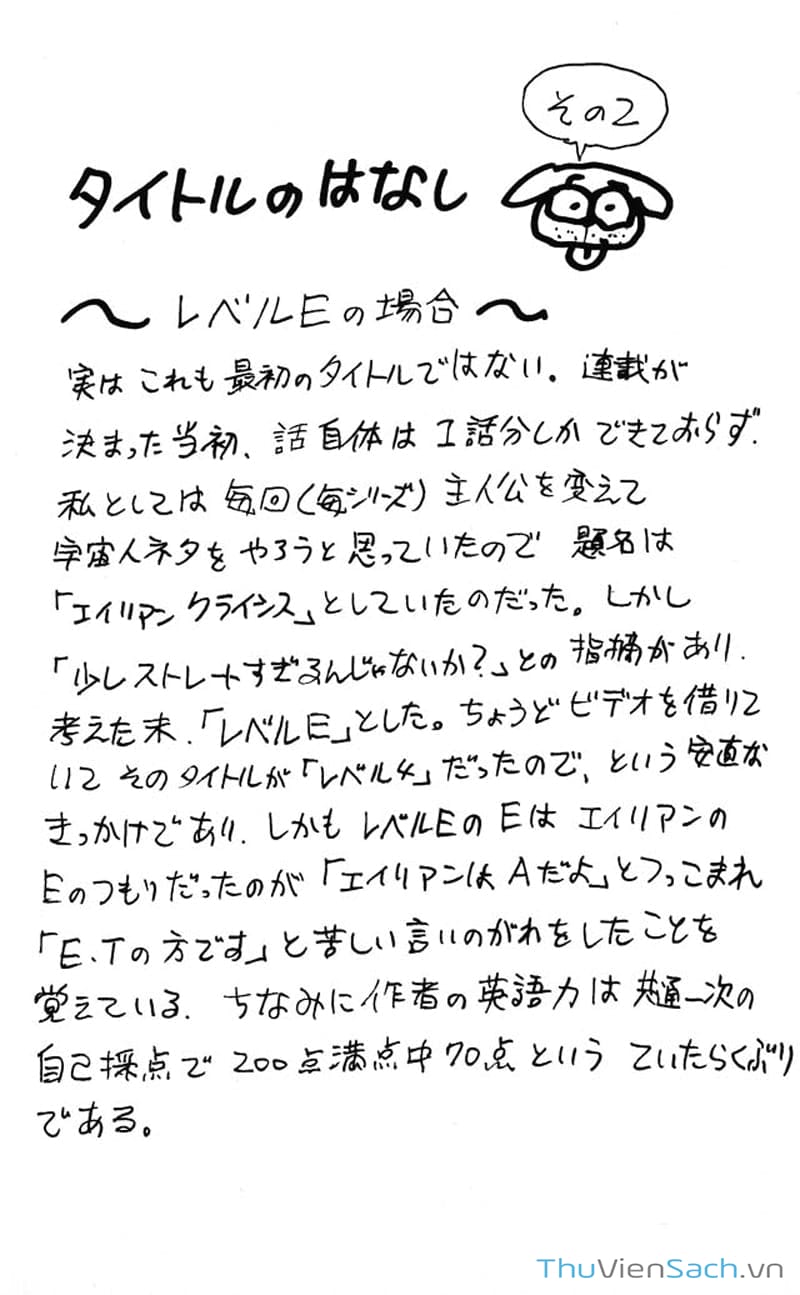 その2
タイトルのはなし
〜レベルEの場合〜
実はこれも最初のタイトルではない。連載が
決まった当初、話自体は1話分しかできておらず、
私としては毎回(毎シリーズ)主人公を変えて
宇宙人ネタをやろうと思っていたので題名は
「エイリアンクライシス」としていたのだった。しかし
「少しストレートすぎるんじゃないか?」との指摘があり、
考えた末、「レベルE」とした。ちょうどビデオを借りて
いてそのタイトルが「レベル4」だったので、という安直な
きっかけであり、しかもレベルEのEはエイリアンの
Eのつもりだったのが「エイリアンはAだよ」とつっこまれ
「E.Tの方です」と苦しい言いのがれをしたことを
覚えている。ちなみに作者の英語力は共通一次の
自己採点で200点満点中70点というていたらくぶり
である。
ThuVienSach.vn